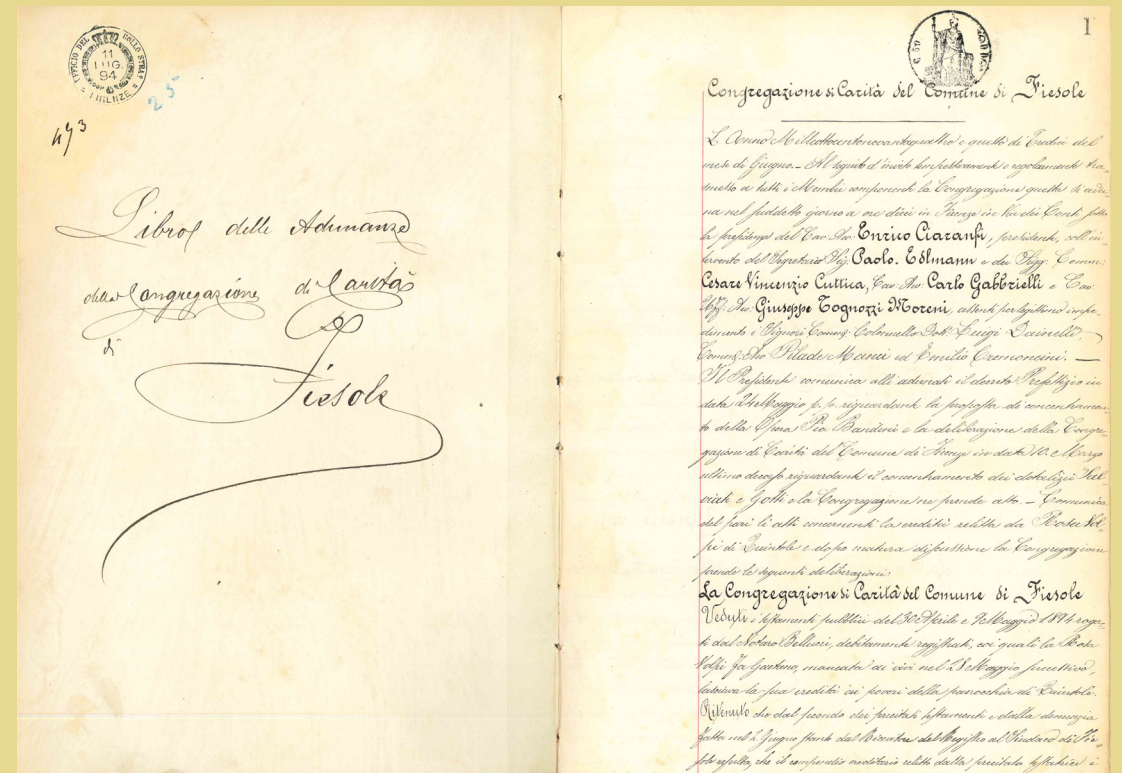 UFFICIO DEL BOLLO STRAF
11
LUG.
94
FIRENZE
25
473
Libro delle Adunanze
della Congregazione di Carità
di
Fiesole
1
Congregazione di Carità del Comune di Fiesole
L'Anno Milleottocentonovantaquattro e questo dì Tredici del
mese di Giugno. — Al seguito d'invito tempestivamente e regolarmente tra=
smesso a tutti i Membri componenti la Congregazione questa si adu=
na nel suddetto giorno a ore dieci in Firenze in Via dei Conti sotto
la presidenza del Cav. Avv. Enrico Ciaranfi, presidente, coll'in=
tervento del Segretario Sig. Paolo. Edlmann e dei Sigg. Comm:
Cesare Vincenzio Cuttica, Cav. Avv. Carlo Gabbrielli e Cav.
Uff. Avv. Giuseppe Tognozzi Moreni, assenti per legittimo impe=
dimento i Signori Comm. Colonnello Dott. Luigi Dainelli,
Comm. Avv. Pilade Manci ed Emilio Cremoncini. —
Il Presidente comunica alli adunati il decreto Prefettizio in
data 24 Maggio p. p. riguardante la proposta di concentramen=
to della Opera Pia Bandini e la deliberazione della Congre=
gazione di Carità del Comune di Firenze in data 10. Marzo
ultimo decorso riguardante il concentramento dei dotalizi
e Gotti e la Congregazione ne prende atto. — Comunica
del pari li atti concernenti la eredità relitta da Rosa Vol=
pi di Quintole e dopo matura discussione la Congregazione
prende le seguenti deliberazioni:
La Congregazione di Carità del Comune di Fiesole
Veduti i testamenti pubblici del 30 Aprile e 9 Maggio 1894 roga=
ti dal Notaro Bellucci, debitamente registrati, coi quali la Rosa
Volpi fu Gaetano, mancata ai vivi nel 28 Maggio successivo,
lasciava la sua eredità ai poveri della parrocchia di Quintole.
Ritenuto che dal secondo dei precitati testamenti e dalla denunzia
fatta nel 2 Giugno stante dal Ricevitore del Registro al Sindaco di Fie=
sole risulta, che il compendio ereditario relitto dalla precitata testatrice è